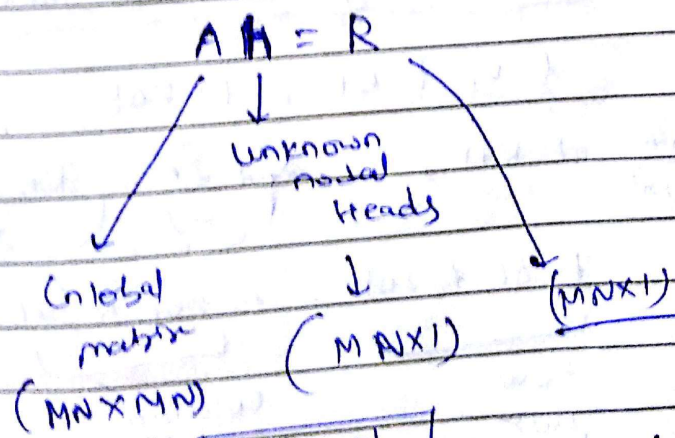 A H = R
Unknown
nodal
Heads
Global
matrix
(MN×MN)
(MN×1)
(MN×1)